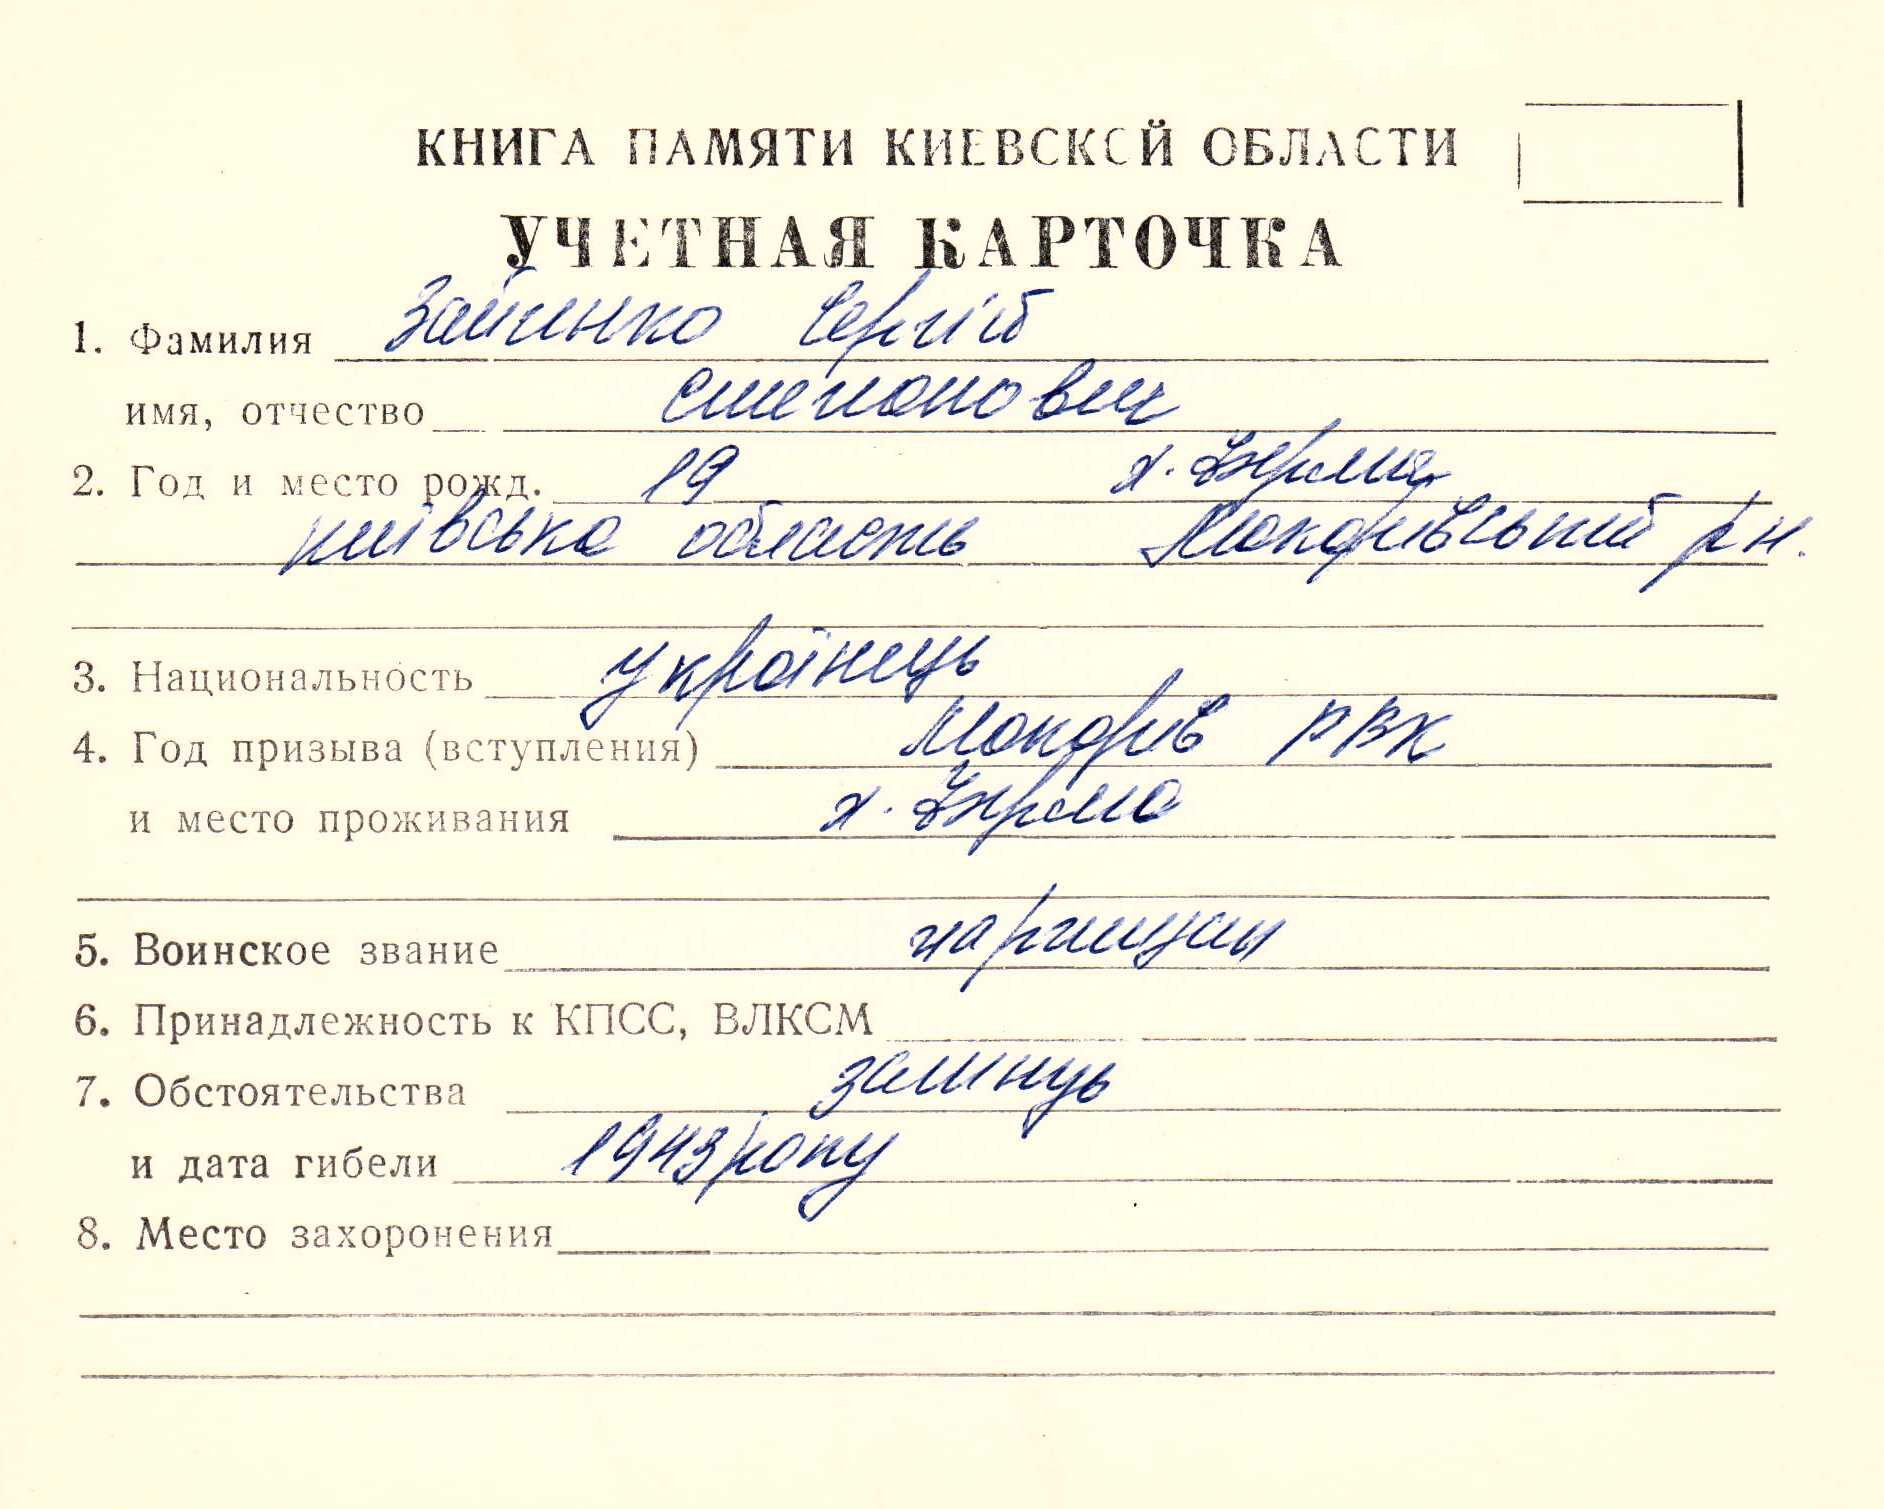 КНИГА ПАМЯТИ КИЕВСКОЙ ОБЛАСТИ
УЧЕТНАЯ КАРТОЧКА
1. Фамилия Зайченко Сергій
имя, отчество Степанович
2. Год и место рожд. 19 х.
Київська область Макарівський р н.
3. Национальность українець
4. Год призыва (вступления) Макарів РВК
и место проживания х.
5. Воинское звание партизан
6. Принадлежность к КПСС, ВЛКСМ
7. Обстоятельства загинув
и дата гибели 1943 року
8. Место захоронения